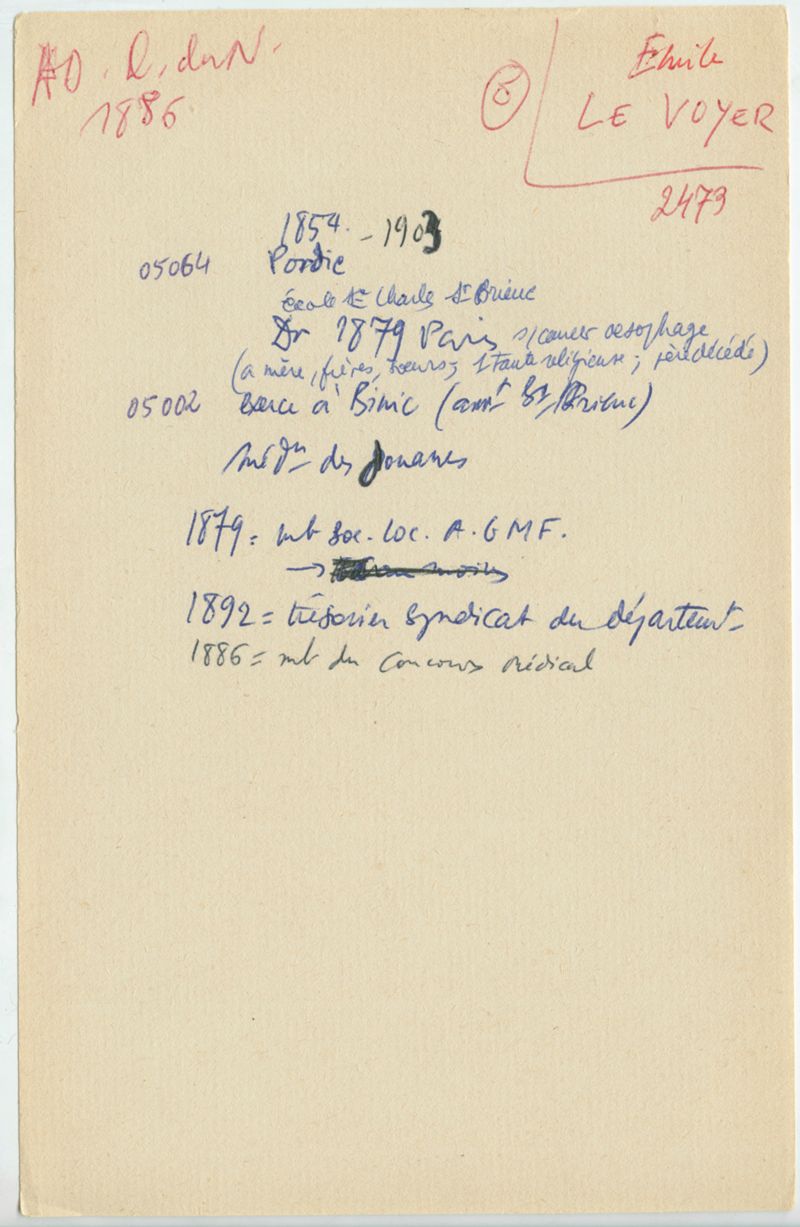 AD. D. du N.
1886
6
Emile
LE VOYER
2473
1854 - 1903
05064 Pordic
école St Charles St Brieuc
Dr 1879 Paris s/cancer oesophage
(a mère, frères, soeurs, 1 tante religieuse ; père décédé)
05002 exerce à Binic (arrt St Brieuc)
méd'n des Douanes
1879 = mb soc. loc. A.G.M.F.
→
1892 = trésorier syndicat du départemt
1886 = mb du Concours Médical